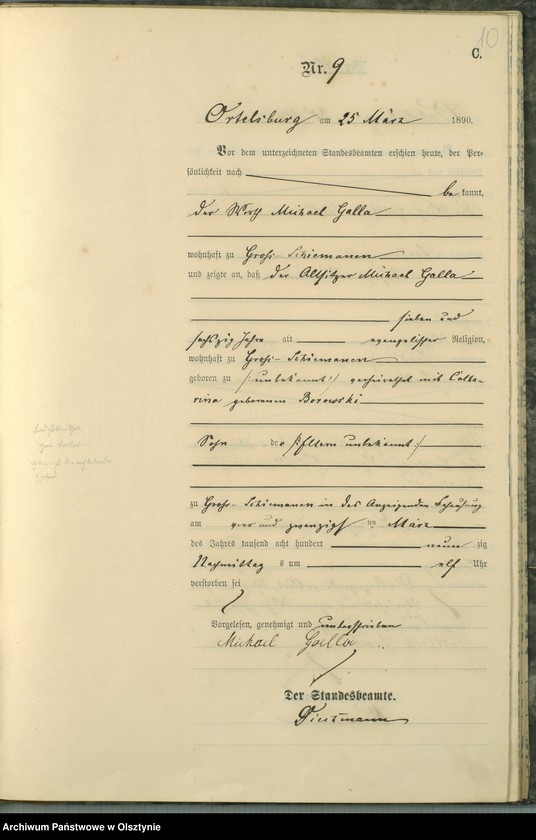 10
C.
Nr. 9
Ortelsburg am 25 März 1890.
Vor dem unterzeichneten Standesbeamten erschien heute, der Per-
sönlichkeit nach
be kannt,
der Wirth Michael Galla
wohnhaft zu Groß-Schiemanen
und zeigte an, daß der Altsitzer Michael Galla
sieben und
sechszig Jahre alt evangelischer Religion,
wohnhaft zu Groß-Schiemanen
geboren zu /:unbekannt:/ verheirathet mit Catha-
rina geborenen Borowski
Sohn der /:Eltern unbekannt:/
zu Groß-Schiemanen in des Anzeigenden Behausung
am vier und zwanzigsten März
des Jahres tausend acht hundert neun zig
Nachmittag s um elf Uhr
verstorben sei
Vorgelesen, genehmigt und unterschrieben
Michael Galla
Der Standesbeamte.
Archiwum Państwowe w Olsztynie